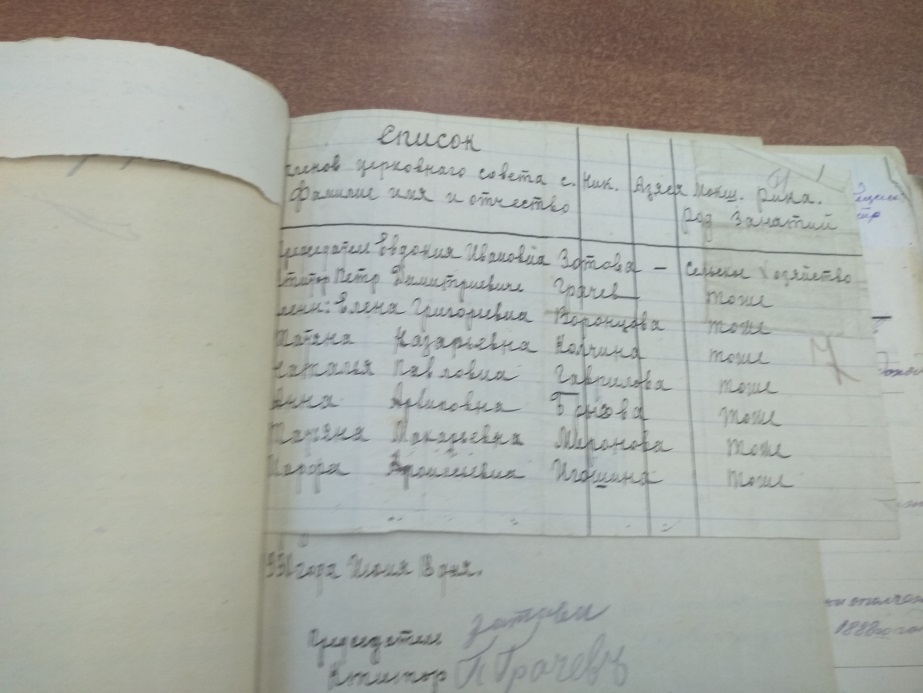 Список
членов церковного совета с. Ник. Азяся Мокш. Рика.
фамилие имя и отчество род занатий
Председатель Евдокия Ивановна Зотова – сельское хозяйство
Ктитор Петр Димитриевиче Грачев тоже
члены: Елена Григориевна Воронцова тоже
Татяна Казарьевна Колчина тоже
Наталья Павловна Гаврилова тоже
Анна тоже
Татяна Макарьевна Миронова тоже
Игошина тоже
года Июня 18 дня.
Председателе
Ктитор П Грачевъ
1888го